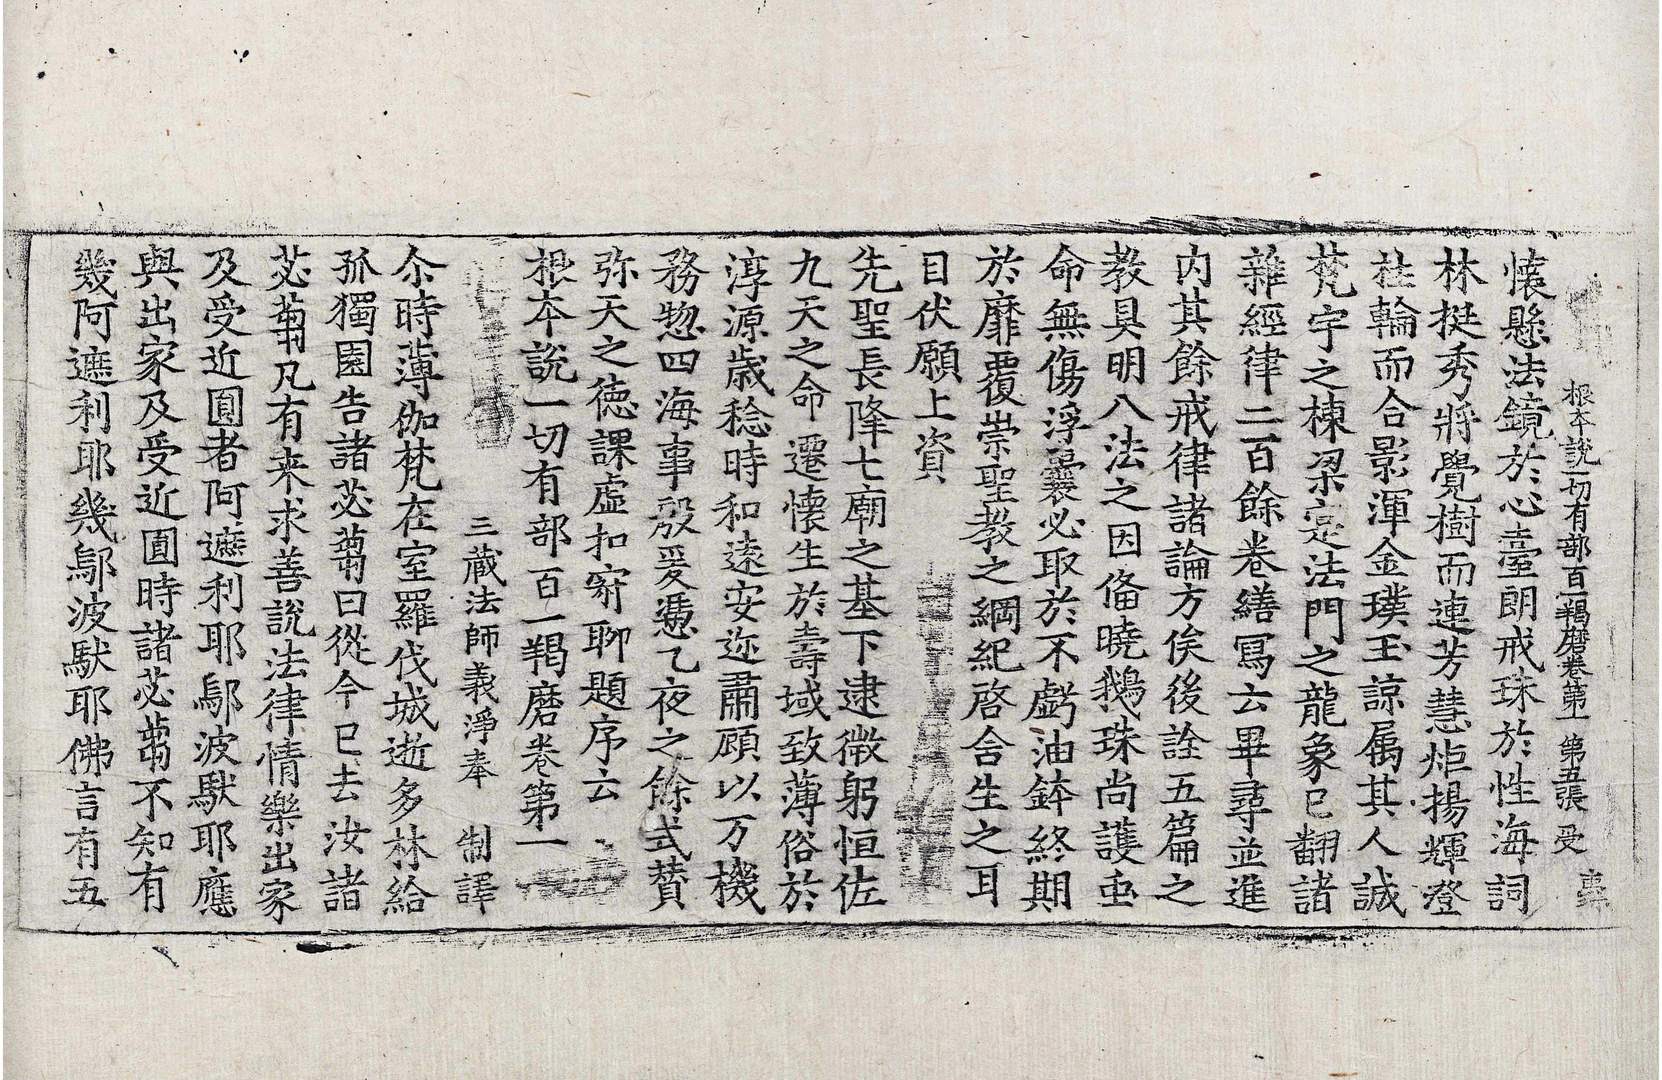 根本說一切有部百一羯磨卷第一 第五張 受
懷懸法鏡於心臺朗戒珠於性海詞
林挺秀將覺樹而連芳慧炬揚輝澄
桂輪而合影渾金璞玉諒属其人誠
梵宇之棟梁寔法門之龍象已翻諸
雜經律二百餘卷繕寫云畢尋並進
内其餘戒律諸論方俟後詮五篇之
教具明八法之因俻曉鵝珠尚護虫
命無傷浮囊必取於不虧油鉢終期
於靡覆崇聖教之綱紀啓含生之耳
目伏願上資
先聖長隆七廟之基下逮微躬恒佐
九天之命遷懷生於壽域致薄俗於
淳源歳稔時和遠安迩肅顧以万機
務惣四海事殷爰憑乙夜之餘式賛
弥天之徳課虛扣寂聊題序云
根本說一切有部百一羯磨卷第一
三蔵法師義淨奉 制譯
尒時薄伽梵在室羅伐城逝多林給
孤獨園告諸苾蒭曰從今已去汝諸
苾蒭凡有来求善說法律情樂出家
及受近圎者阿遮利耶鄔波馱耶應
與出家及受近圎時諸苾蒭不知有
幾阿遮利耶幾鄔波馱耶佛言有五